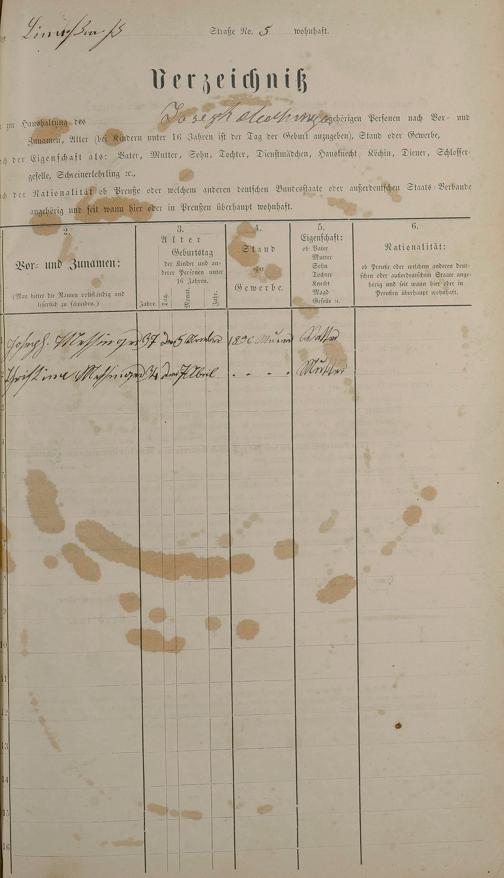 Straße No. 5 wohnhaft.
Verzeichniß
zu Haushaltung des Joseph gehörigen Personen nach Vor- und
Zunamen, Alter (bei Kindern unter 16 Jahren ist der Tag der Geburt anzugeben), Stand oder Gewerbe,
der Eigenschaft als: Vater, Mutter, Sohn, Tochter, Dienstmädchen, Hausknecht, Köchin, Diener, Schlosser-
geselle, Schreinerlehrling ꝛc.,
der Nationalität ob Preuße oder welchem anderen deutschen Bundesstaate oder außerdeutschen Staats-Verbande
angehörig und seit wann hier oder in Preußen überhaupt wohnhaft.
2.
Vor- und Zunamen:
(Man bittet die Namen vollständig und leserlich zu schreiben.)
3.
Alter
Geburtstag
der Kinder und an-
deren Personen unter
16 Jahren.
Jahre. Tag. Monat. Jahr.
4.
Stand
oder
Gewerbe.
5.
Eigenschaft:
ob Vater
Mutter
Sohn
Tochter
Knecht
Magd
Geselle ꝛc.
6.
Nationalität:
ob Preuße oder welchem anderen deut-
schen oder außerdeutschen Staate ange-
hörig und seit wann hier oder in
Preußen überhaupt wohnhaft.
Joseph Messinger 37 den 5 1836 Vater
Christine Messinger 34 den 7 April Mutter
7
8
9
10
11
12
13
14
15
16